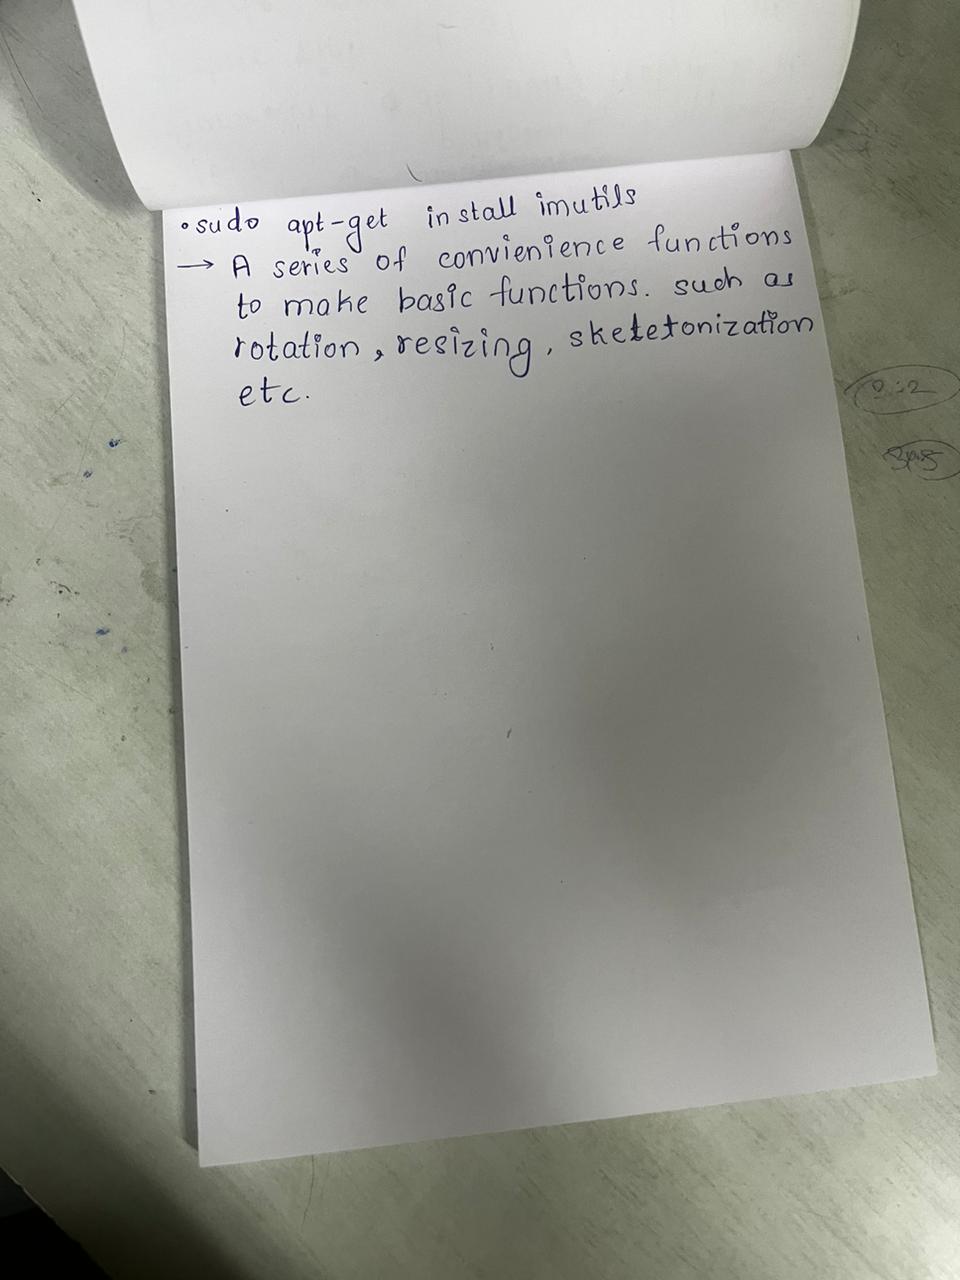 • sudo apt-get install imutils
→ A series of convienience functions
to make basic functions. such as
rotation, resizing, sketetonization
etc.